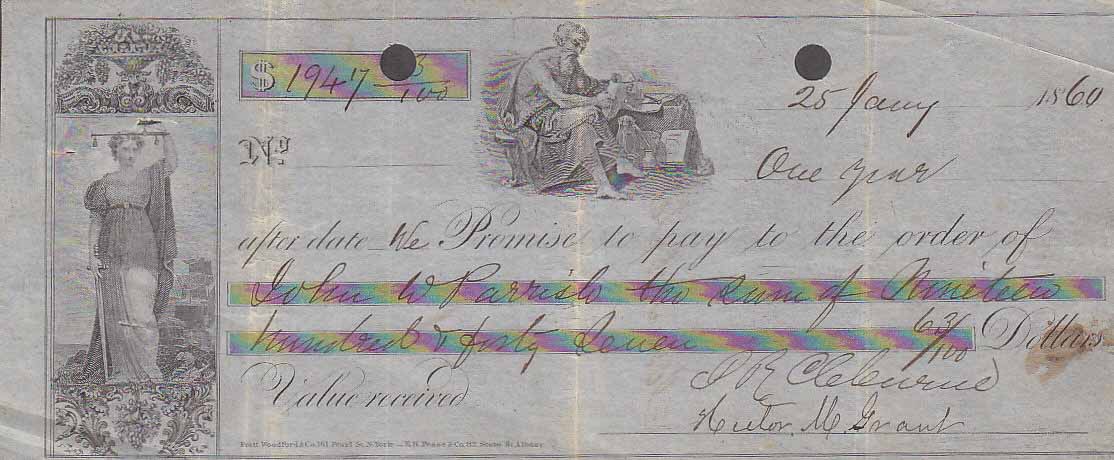 $ 1947 /100
25 Jany 1860
No.
One year
after date We Promise to pay to the order of
John W Parrish the Sum of Nineteen
Hundred & forty Seven 63/100 Dollars
Value received
Cleburne
Hector M Grant
Pratt Woodford & Co. 161 Pearl St. N. York — E.H. Pease & Co. 82 State St. Albany